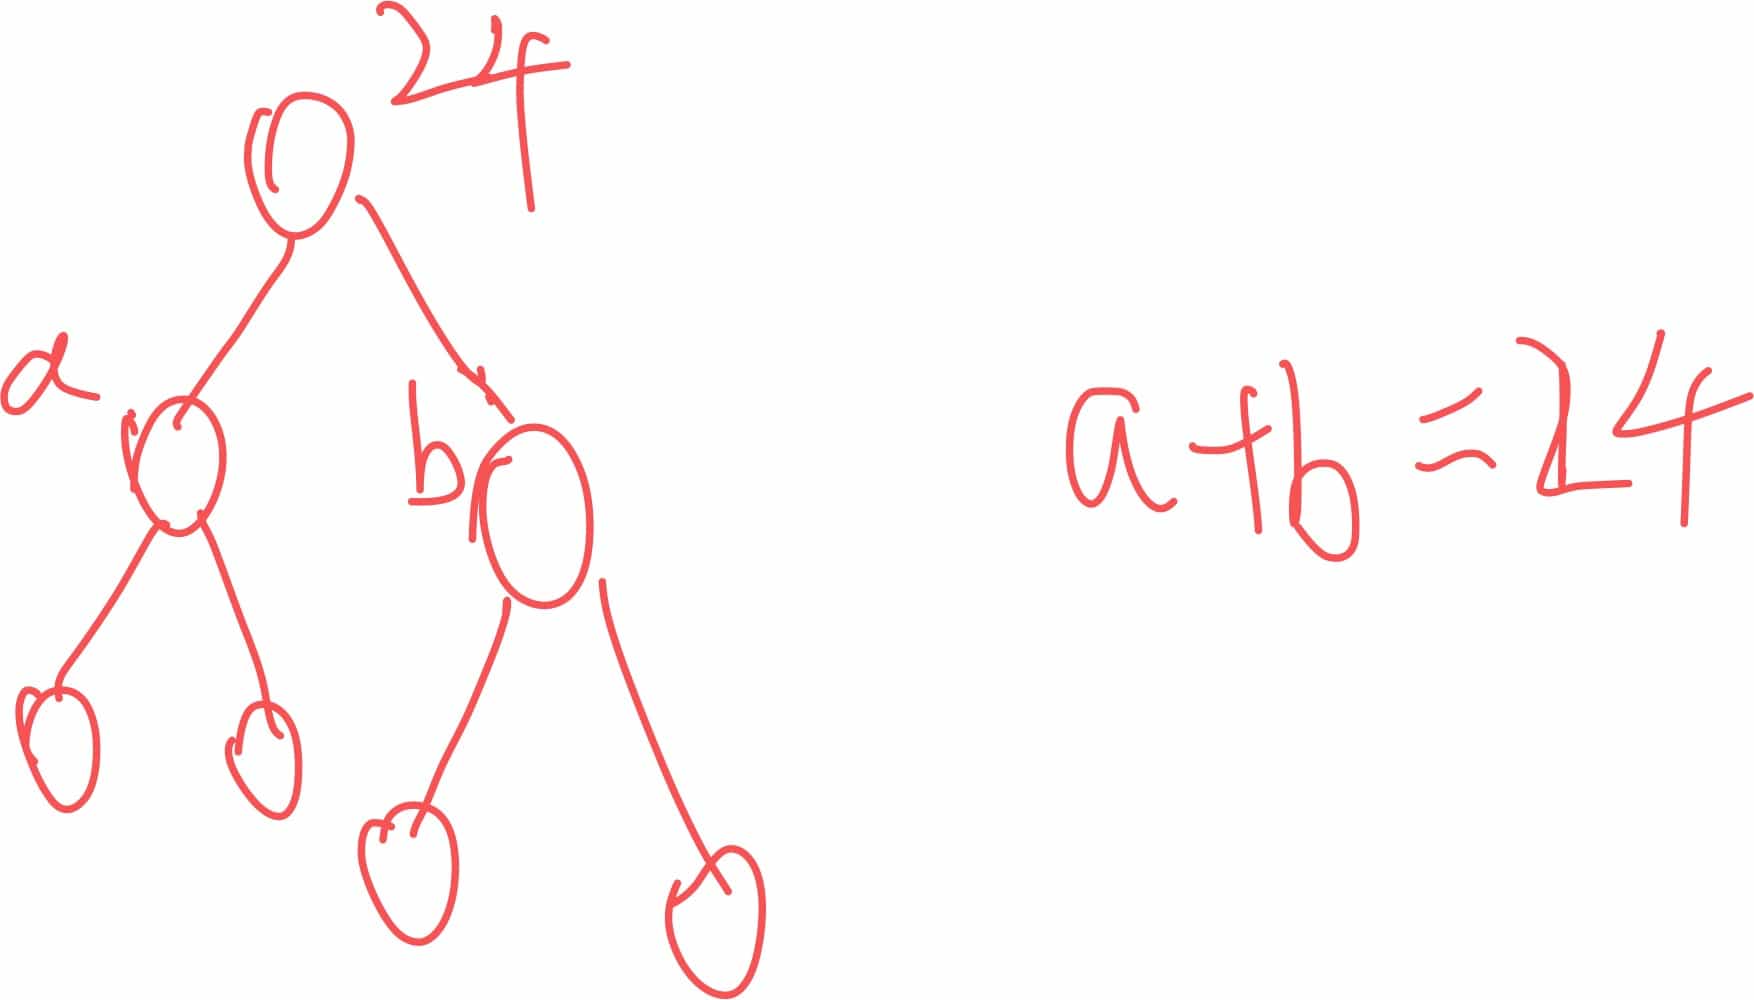 24
a
b
a+b=24